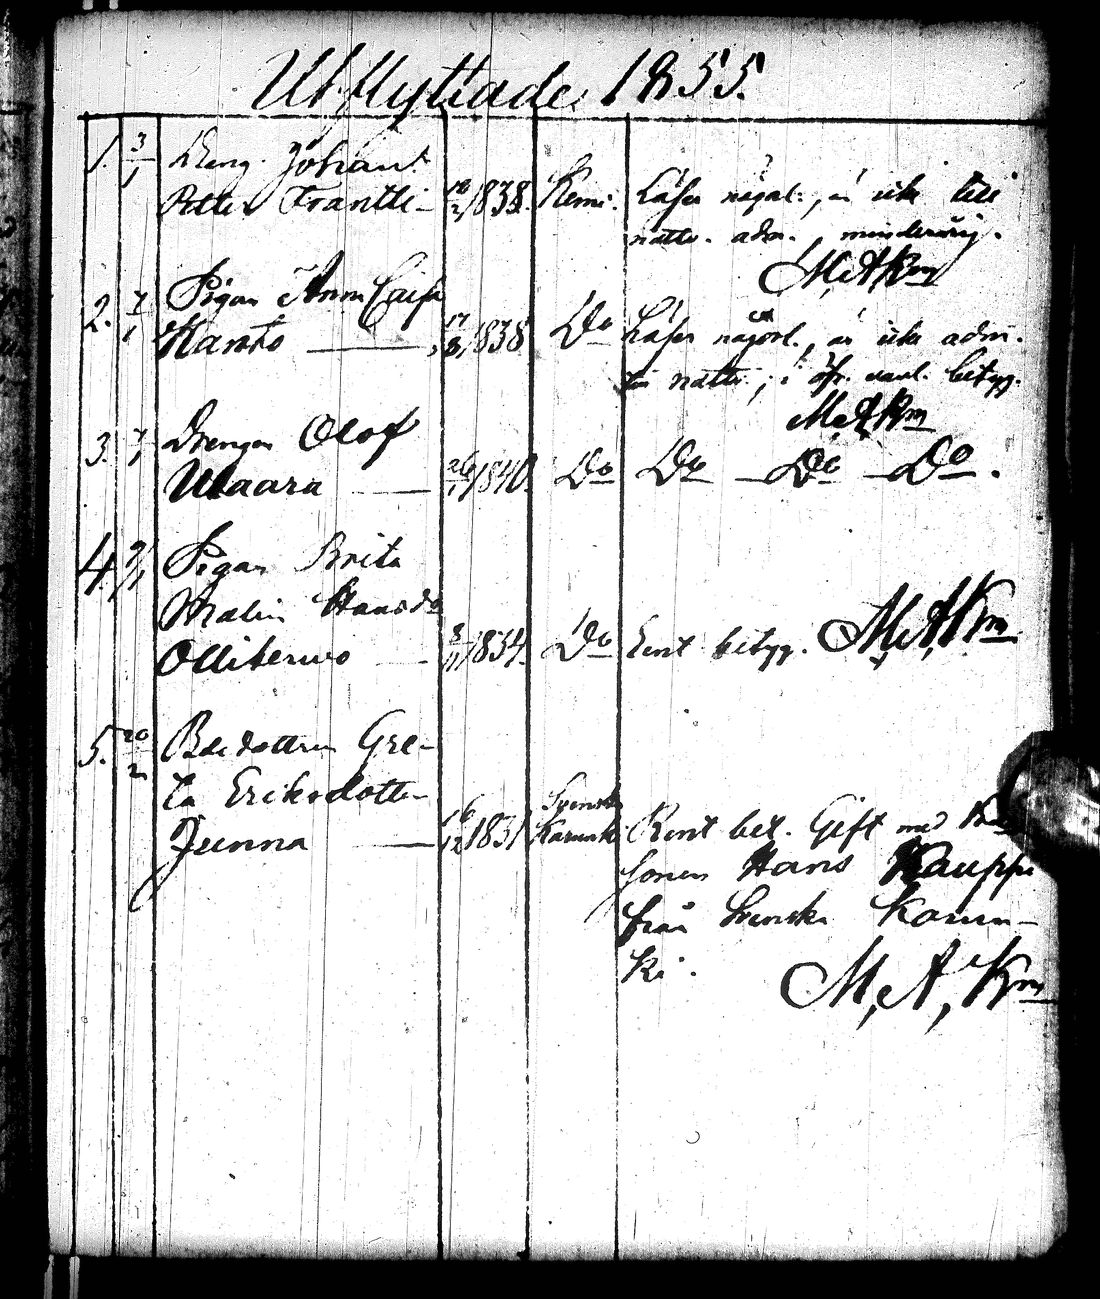 Utflyttade 1855.
1. 3/1 Dreng. Johan
Petter Frantti - /2 1838. Kemi. Läser någol., är icke till
nattv. adm., minderårig.
M,A,Km
2. 7/1 Pigan Anna Caisa
Kanto — 17/8 1838 Do Läser någorl., är icke adm.
till nattv.; i öfr. betyg.
M,A,Km
3. 7/1 Drengen Olof
Waara — 26/1 1840. Do Do — Do — Do.
4. 9/1 Pigan Brita
Malin Hansdr
Ollikervo — 8/11 1834. Do Rent betyg. M,A,Km
5. 20/2 Bdedottren Gre-
ta Eriksdotter
Svenska
Junna — 16/12 1831 Karunki Rent bet. Gift med
sonen Hans Kauppi
från Svenska Karun-
ki.
M,A,Km